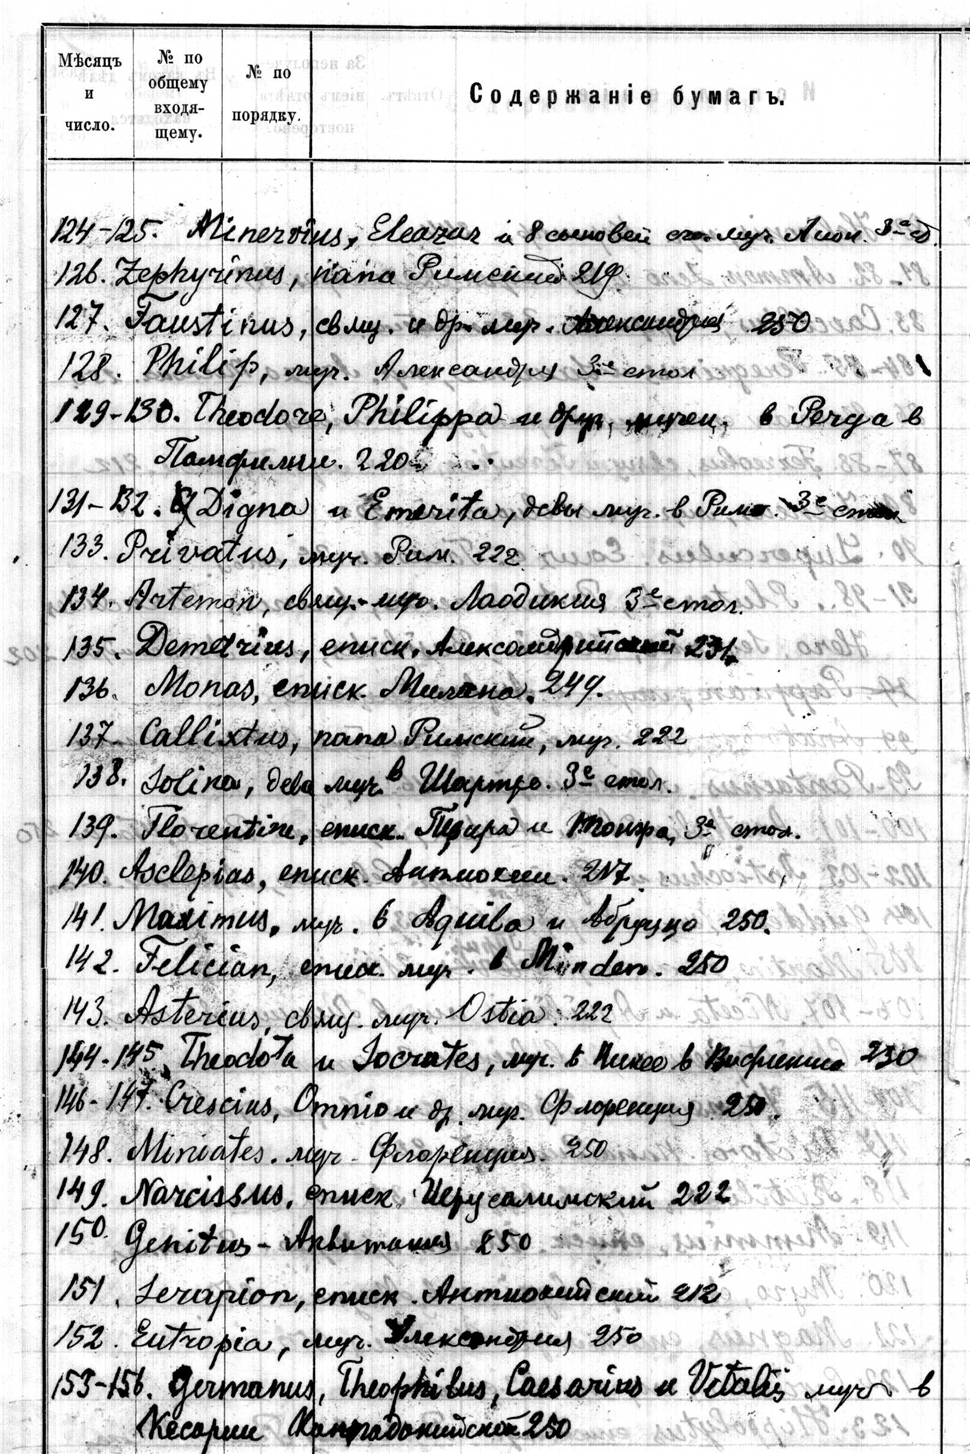 Мѣсяцъ и число.
№ по общему входящему.
№ по порядку.
Содержаніе бумагъ.
124-125. Minervius, Eleazar и 8 сыновей муч. Лион. 3е
126. Zephyrinus, папа Римский 219
127. Faustinus, свящ. и др. муч. Александрия 250
128. Philip, муч. Александрия 3е стол
129-130. Theodore, Philippa и друг. мучен. в Perga в
Памфилии. 220
131-132. Digna и Emerita, девы муч. в Риме. 3е стол
133. Privatus, муч. Рим. 222
134. Artemon, свящ.-муч. Лаодикия 3е стол.
135. Demetrius, еписк. Александрийский 231
136. Monas, еписк. Милана. 249.
137. Callixtus, папа Римский, муч. 222
138. Solina, дева муч. в Шартре. 3е стол.
139. Florentine, еписк. и 3е стол.
140. Asclepias, еписк. Антиохии. 217
141. Maximus, муч. в Aquila и Абруццо 250.
142. Felician, еписк. муч. в Minden. 250
143. Asterius, свящ. муч. Ostia. 222
144-145. Theodota и Socrates, муч. в Никее в Вифинии 230
146-147. Crescius, Omnio и др. муч. Флоренция 250.
148. Miniates. муч. Флоренция. 250
149. Narcissus, еписк Иерусалимский 222
150. Genitus - Аквитания 250
151. Serapion, еписк. Антиохийский 212
152. Eutropia, муч. Александрия 250
153-156. Germanus, Theophilus, Caesarius и Vitalis муч в
Кесарии Каппадокийской 250